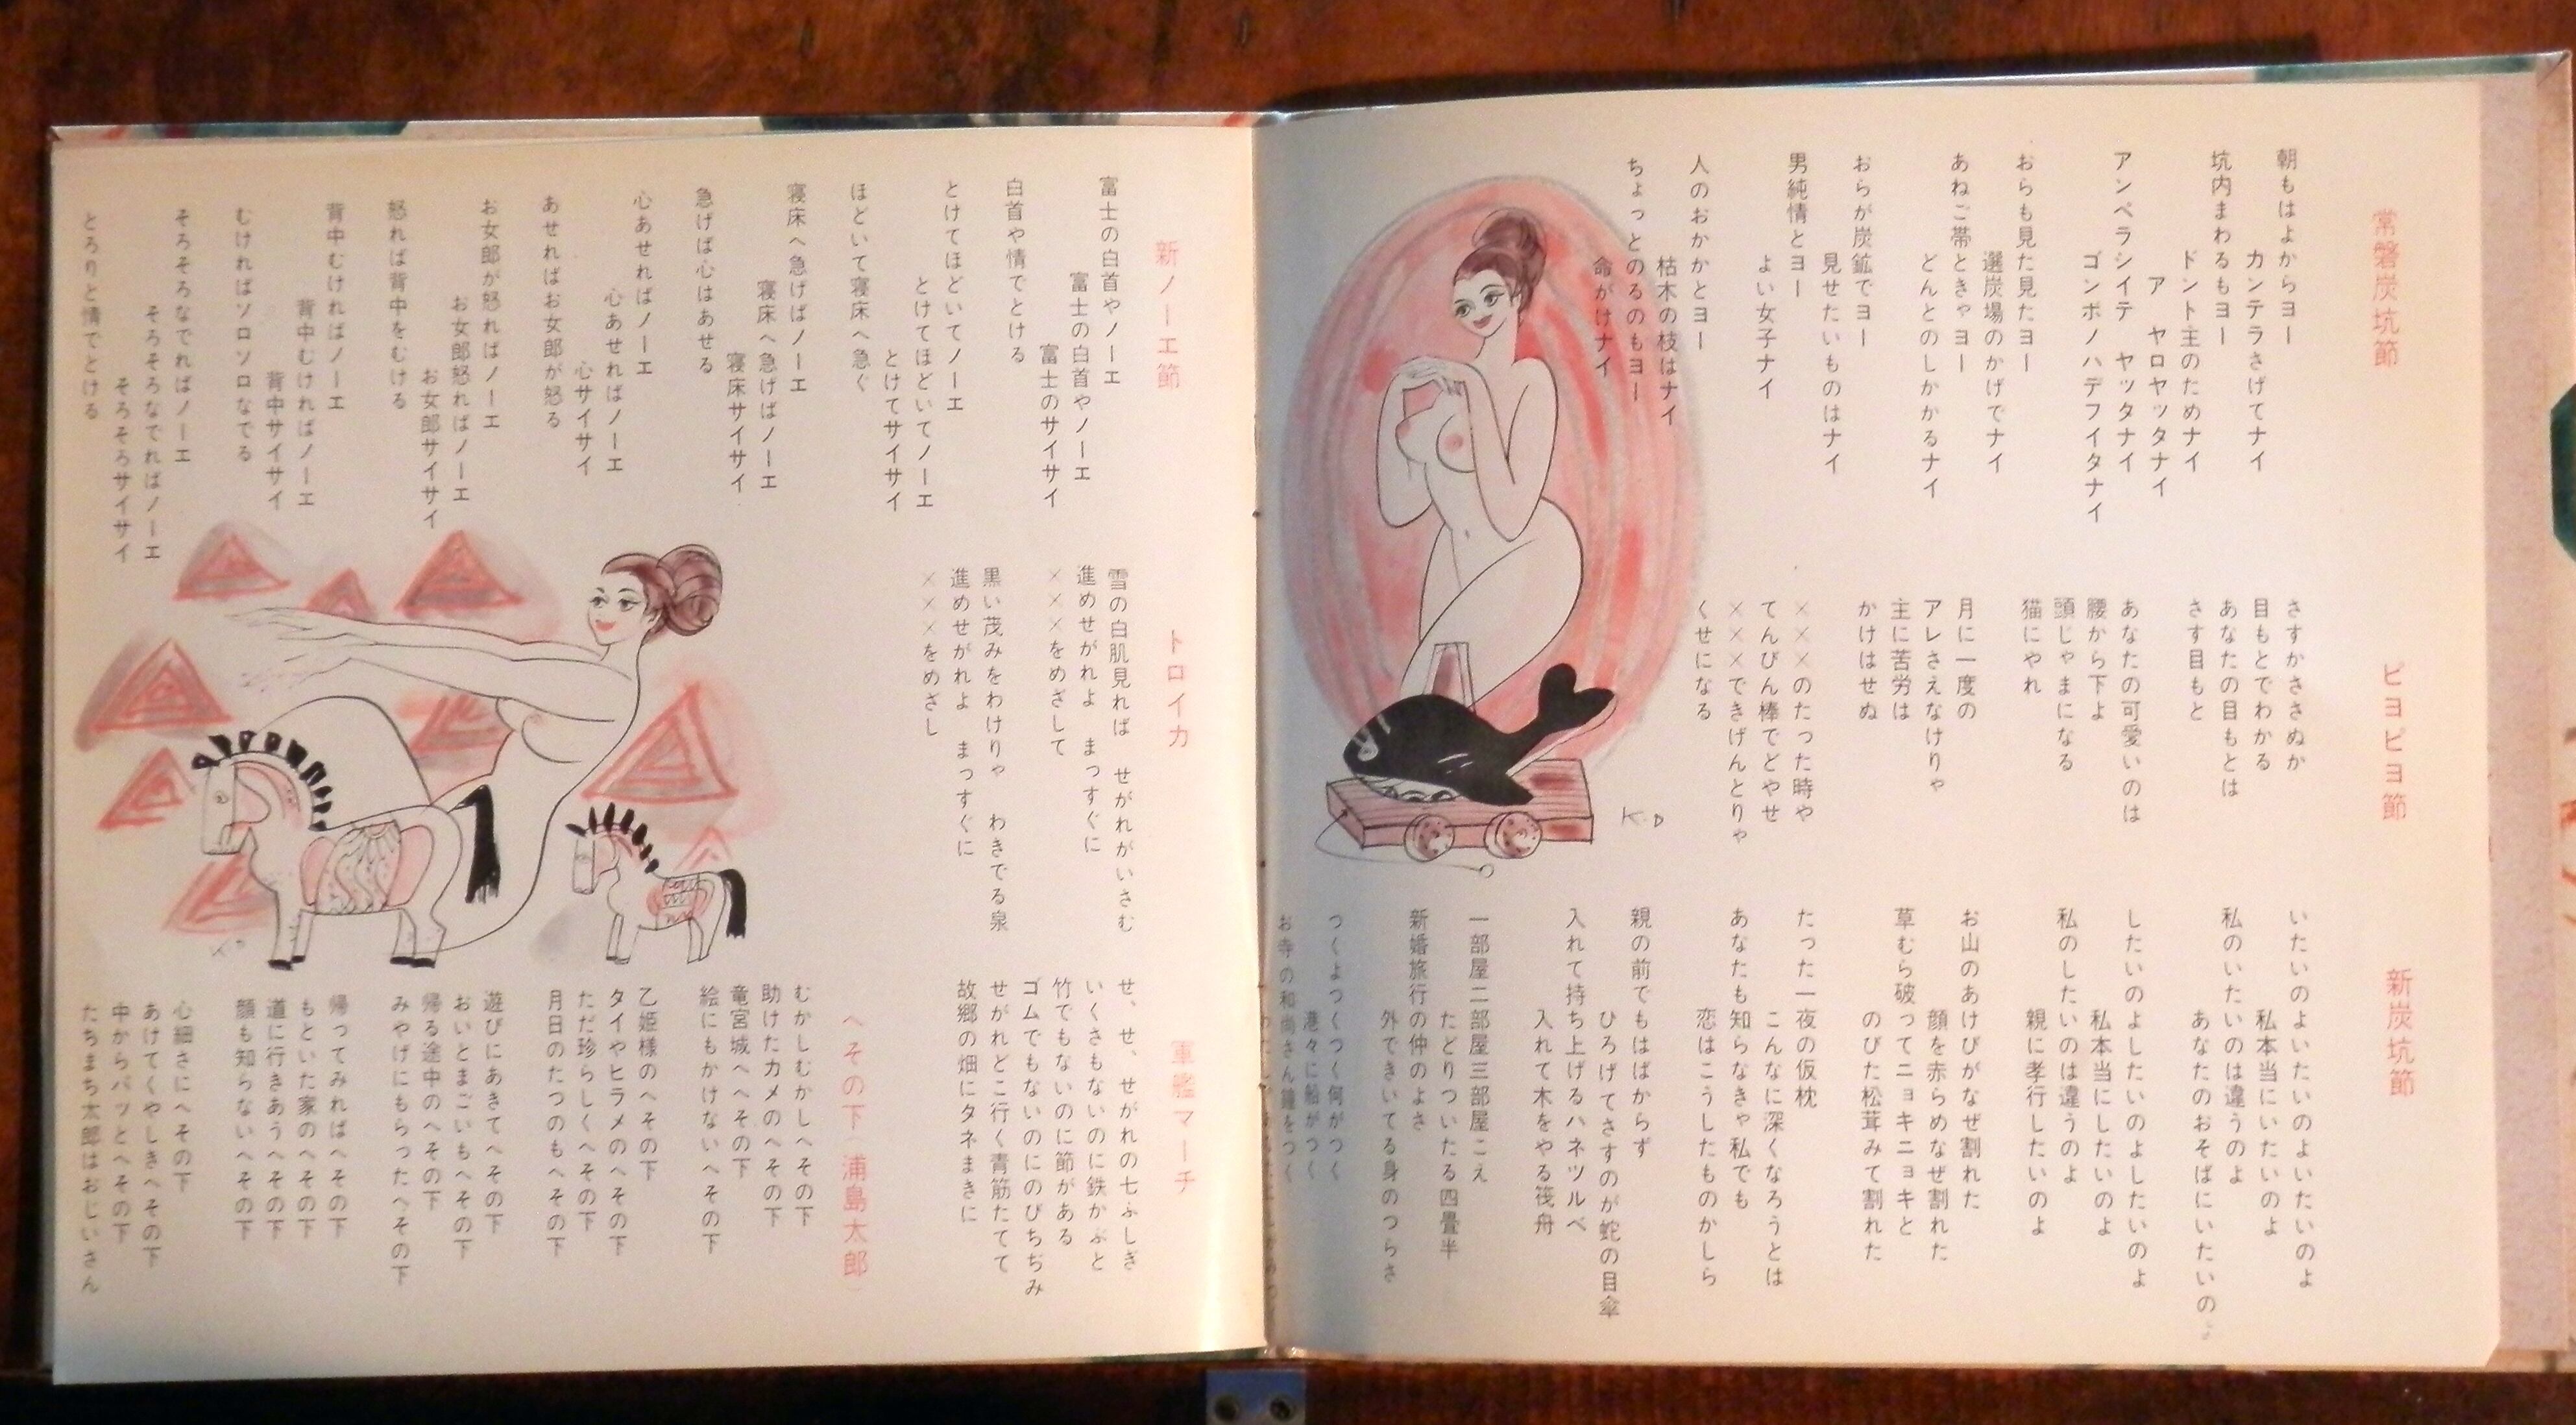 常磐炭坑節
朝もはよからヨー
カンテラさげてナイ
坑内まわるもヨー
ドント主のためナイ
ア　ヤロヤッタナイ
アンペラシイテ　ヤッタナイ
ゴンボノハデフイタナイ
おらも見た見たヨー
選炭場のかげでナイ
あねご帯ときゃヨー
どんとのしかかるナイ
おらが炭鉱でヨー
見せたいものはナイ
男純情とヨー
よい女子ナイ
人のおかかとヨー
枯木の枝はナイ
ちょっとのるのもヨー
命がけナイ
ピヨピヨ節
さすかささぬか
目もとでわかる
あなたの目もとは
さす目もと
あなたの可愛いのは
腰から下よ
頭じゃまになる
猫にやれ
月に一度の
アレさえなけりゃ
主に苦労は
かけはせぬ
×××のたった時や
てんびん棒でどやせ
×××できげんとりゃ
くせになる
K.D
新炭坑節
いたいのよいたいのよいたいのよ
私本当にいたいのよ
私のいたいのは違うのよ
あなたのおそばにいたいのよ
したいのよしたいのよしたいのよ
私本当にしたいのよ
私のしたいのは違うのよ
親に孝行したいのよ
お山のあけびがなぜ割れた
顔を赤らめなぜ割れた
草むら破ってニョキニョキと
のびた松茸みて割れた
たった一夜の仮枕
こんなに深くなろうとは
あなたも知らなきゃ私でも
恋はこうしたものかしら
親の前でもはばからず
ひろげてさすのが蛇の目傘
入れて持ち上げるハネツルベ
入れて木をやる筏舟
一部屋二部屋三部屋こえ
たどりついたる四畳半
新婚旅行の仲のよさ
外できいてる身のつらさ
つくよつくつく何がつく
港々に船がつく
お寺の和尚さん鐘をつく
新ノーエ節
富士の白首やノーエ
富士の白首やノーエ
富士のサイサイ
白首や情でとける
とけてほどいてノーエ
とけてほどいてノーエ
とけてサイサイ
ほどいて寝床へ急ぐ
寝床へ急げばノーエ
寝床へ急げばノーエ
寝床サイサイ
急げば心はあせる
心あせればノーエ
心あせればノーエ
心サイサイ
あせればお女郎が怒る
お女郎が怒ればノーエ
お女郎怒ればノーエ
お女郎サイサイ
怒れば背中をむける
背中むければノーエ
背中むければノーエ
背中サイサイ
むければソロソロなでる
そろそろなでればノーエ
そろそろなでればノーエ
そろそろサイサイ
とろりと情でとける
トロイカ
雪の白肌見れば　せがれがいさむ
進めせがれよ　まっすぐに
×××をめざして
黒い茂みをわけりゃ　わきでる泉
進めせがれよ　まっすぐに
×××をめざし
軍艦マーチ
せ、せ、せがれの七ふしぎ
いくさもないのに鉄かぶと
竹でもないのに節がある
ゴムでもないのにのびちぢみ
せがれどこ行く青筋たてて
故郷の畑にタネまきに
へその下（浦島太郎）
むかしむかしへその下
助けたカメのへその下
竜宮城へへその下
絵にもかけないへその下
乙姫様のへその下
タイやヒラメのへその下
ただ珍らしくへその下
月日のたつのもへその下
遊びにあきてへその下
おいとまごいもへその下
帰る途中のへその下
みやげにもらったへその下
帰ってみればへその下
もといた家のへその下
道に行きあうへその下
顔も知らないへその下
心細さにへその下
あけてくやしきへその下
中からパッとへその下
たちまち太郎はおじいさん